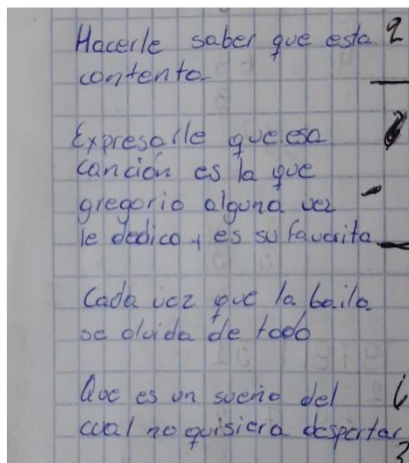 Hacerle saber que esta 2
contento.
Expresarle que esa
canción es la que
gregorio alguna vez
le dedico y es su favorita
Cada vez que la baila
se olvida de todo
Que es un sueño del
cual no quisiera despertar